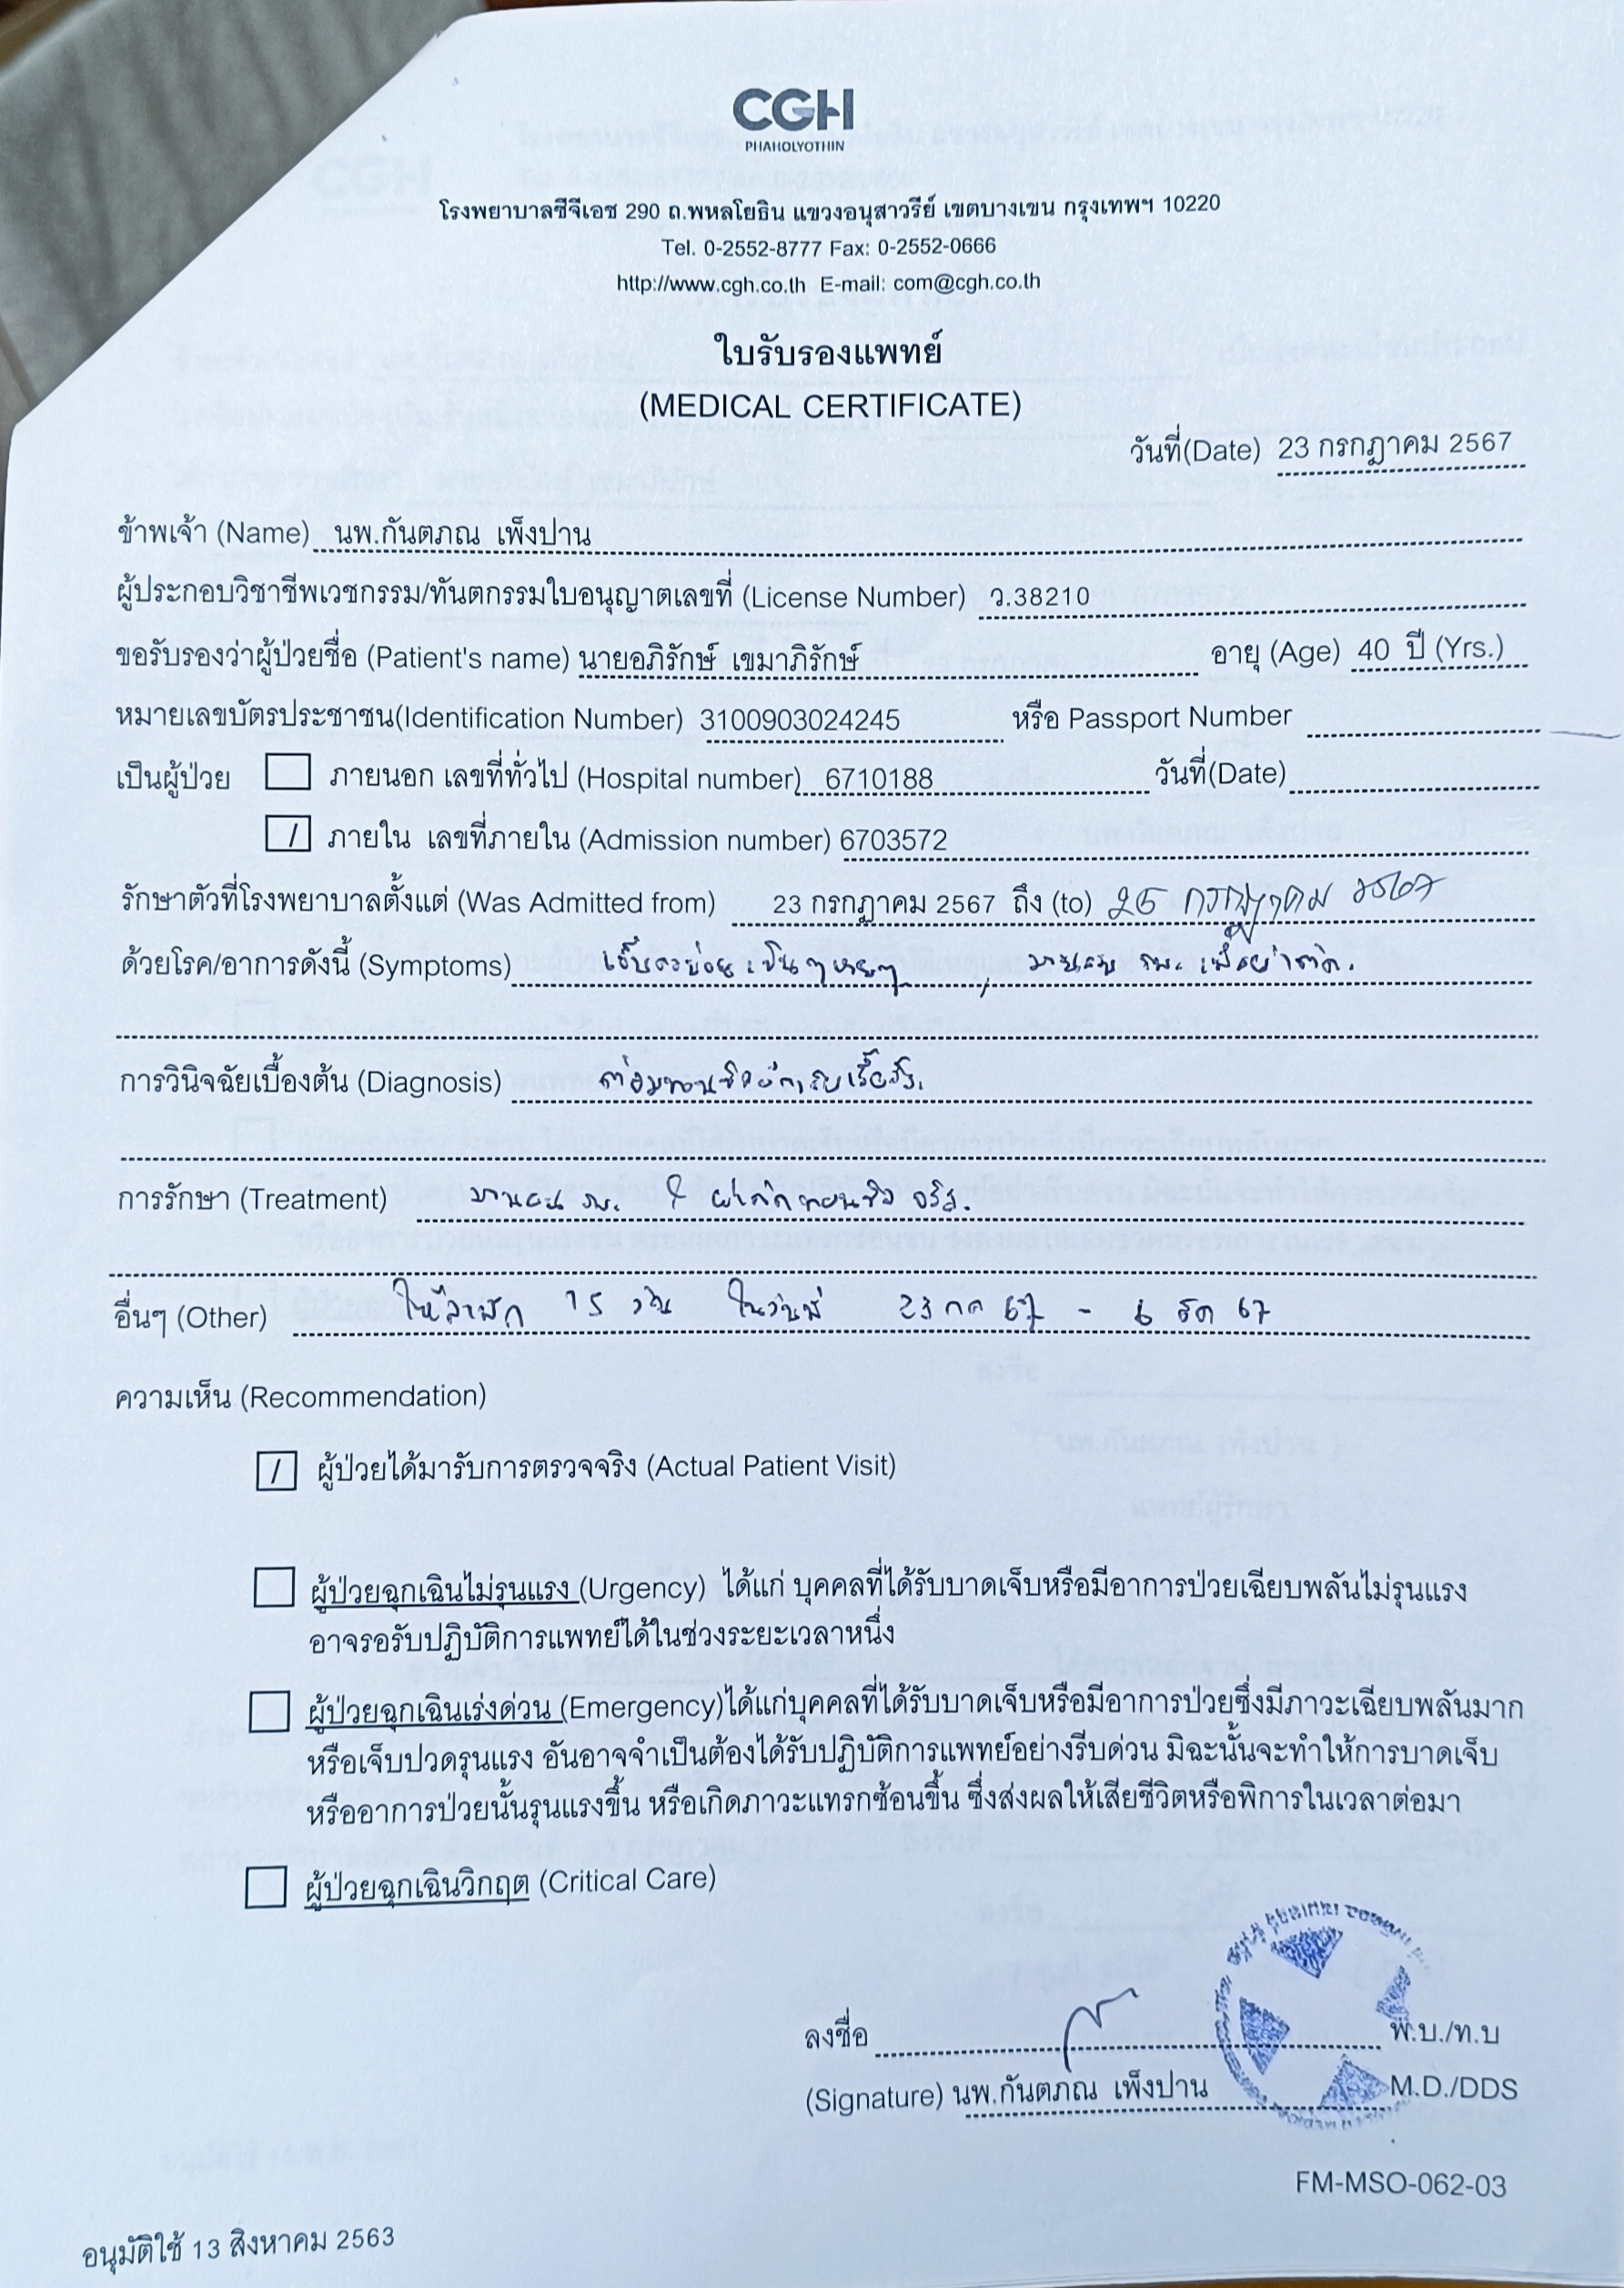 CGH
PHAHOLYOTHIN
โรงพยาบาลซีจีเอช 290 ถ.พหลโยธิน แขวงอนุสาวรีย์ เขตบางเขน กรุงเทพฯ 10220
Tel. 0-2552-8777 Fax: 0-2552-0666
http://www.cgh.co.th E-mail: com@cgh.co.th
ใบรับรองแพทย์
(MEDICAL CERTIFICATE)
วันที่(Date) 23 กรกฎาคม 2567
ข้าพเจ้า (Name) นพ.กันตภณ เพ็งปาน
ผู้ประกอบวิชาชีพเวชกรรม/ทันตกรรมใบอนุญาตเลขที่ (License Number) ว.38210
ขอรับรองว่าผู้ป่วยชื่อ (Patient's name) นายอภิรักษ์ เขมาภิรักษ์ อายุ (Age) 40 ปี (Yrs.)
หมายเลขบัตรประชาชน(Identification Number) 3100903024245 หรือ Passport Number
เป็นผู้ป่วย ภายนอก เลขที่ทั่วไป (Hospital number) 6710188 วันที่(Date)
/ ภายใน เลขที่ภายใน (Admission number) 6703572
รักษาตัวที่โรงพยาบาลตั้งแต่ (Was Admitted from) 23 กรกฎาคม 2567 ถึง (to) 25 กรกฎาคม 2567
ด้วยโรค/อาการดังนี้ (Symptoms) เจ็บคอบ่อย เป็นๆหายๆ, มานอน รพ. เพื่อผ่าตัด.
การวินิจฉัยเบื้องต้น (Diagnosis) ต่อมทอนซิลอักเสบเรื้อรัง.
การรักษา (Treatment) มานอน รพ. ผ่าตัดทอนซิล
อื่นๆ (Other) ให้ลาพัก 15 วัน ในวันที่ 23 กค 67 - 6 สค 67
ความเห็น (Recommendation)
/ ผู้ป่วยได้มารับการตรวจจริง (Actual Patient Visit)
ผู้ป่วยฉุกเฉินไม่รุนแรง (Urgency) ได้แก่ บุคคลที่ได้รับบาดเจ็บหรือมีอาการป่วยเฉียบพลันไม่รุนแรง
อาจรอรับปฏิบัติการแพทย์ได้ในช่วงระยะเวลาหนึ่ง
ผู้ป่วยฉุกเฉินเร่งด่วน (Emergency)ได้แก่บุคคลที่ได้รับบาดเจ็บหรือมีอาการป่วยซึ่งมีภาวะเฉียบพลันมาก
หรือเจ็บปวดรุนแรง อันอาจจำเป็นต้องได้รับปฏิบัติการแพทย์อย่างรีบด่วน มิฉะนั้นจะทำให้การบาดเจ็บ
หรืออาการป่วยนั้นรุนแรงขึ้น หรือเกิดภาวะแทรกซ้อนขึ้น ซึ่งส่งผลให้เสียชีวิตหรือพิการในเวลาต่อมา
ผู้ป่วยฉุกเฉินวิกฤต (Critical Care)
ลงชื่อ พ.บ./ท.บ
(Signature) นพ.กันตภณ เพ็งปาน M.D./DDS
FM-MSO-062-03
อนุมัติใช้ 13 สิงหาคม 2563